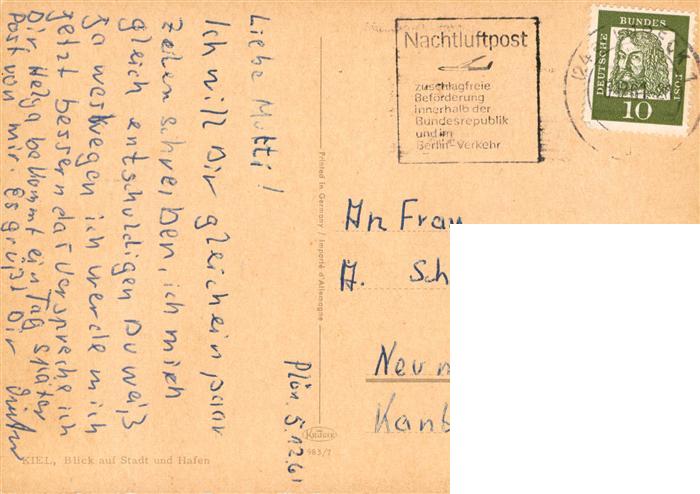 Liebe Mutti!
Ich will Dir gleich ein paar
Zeilen schreiben, ich mich
gleich entschuldigen Du weiß
ja weswegen ich werde mich
jetzt bessern daß verspreche ich
Dir Helga bekommt ein Tag später
Post von mir. Es grüßt Dir
Plön. 5.12.61
KIEL, Blick auf Stadt und Hafen
Printed in Germany / Importé d'Allemagne
Krüger
983/7
Nachtluftpost
zuschlagfreie
Beförderung
innerhalb der
Bundesrepublik
und im
Berlin-Verkehr
DEUTSCHE BUNDESPOST
10
An Frau
A. Sch
Neum
Kant